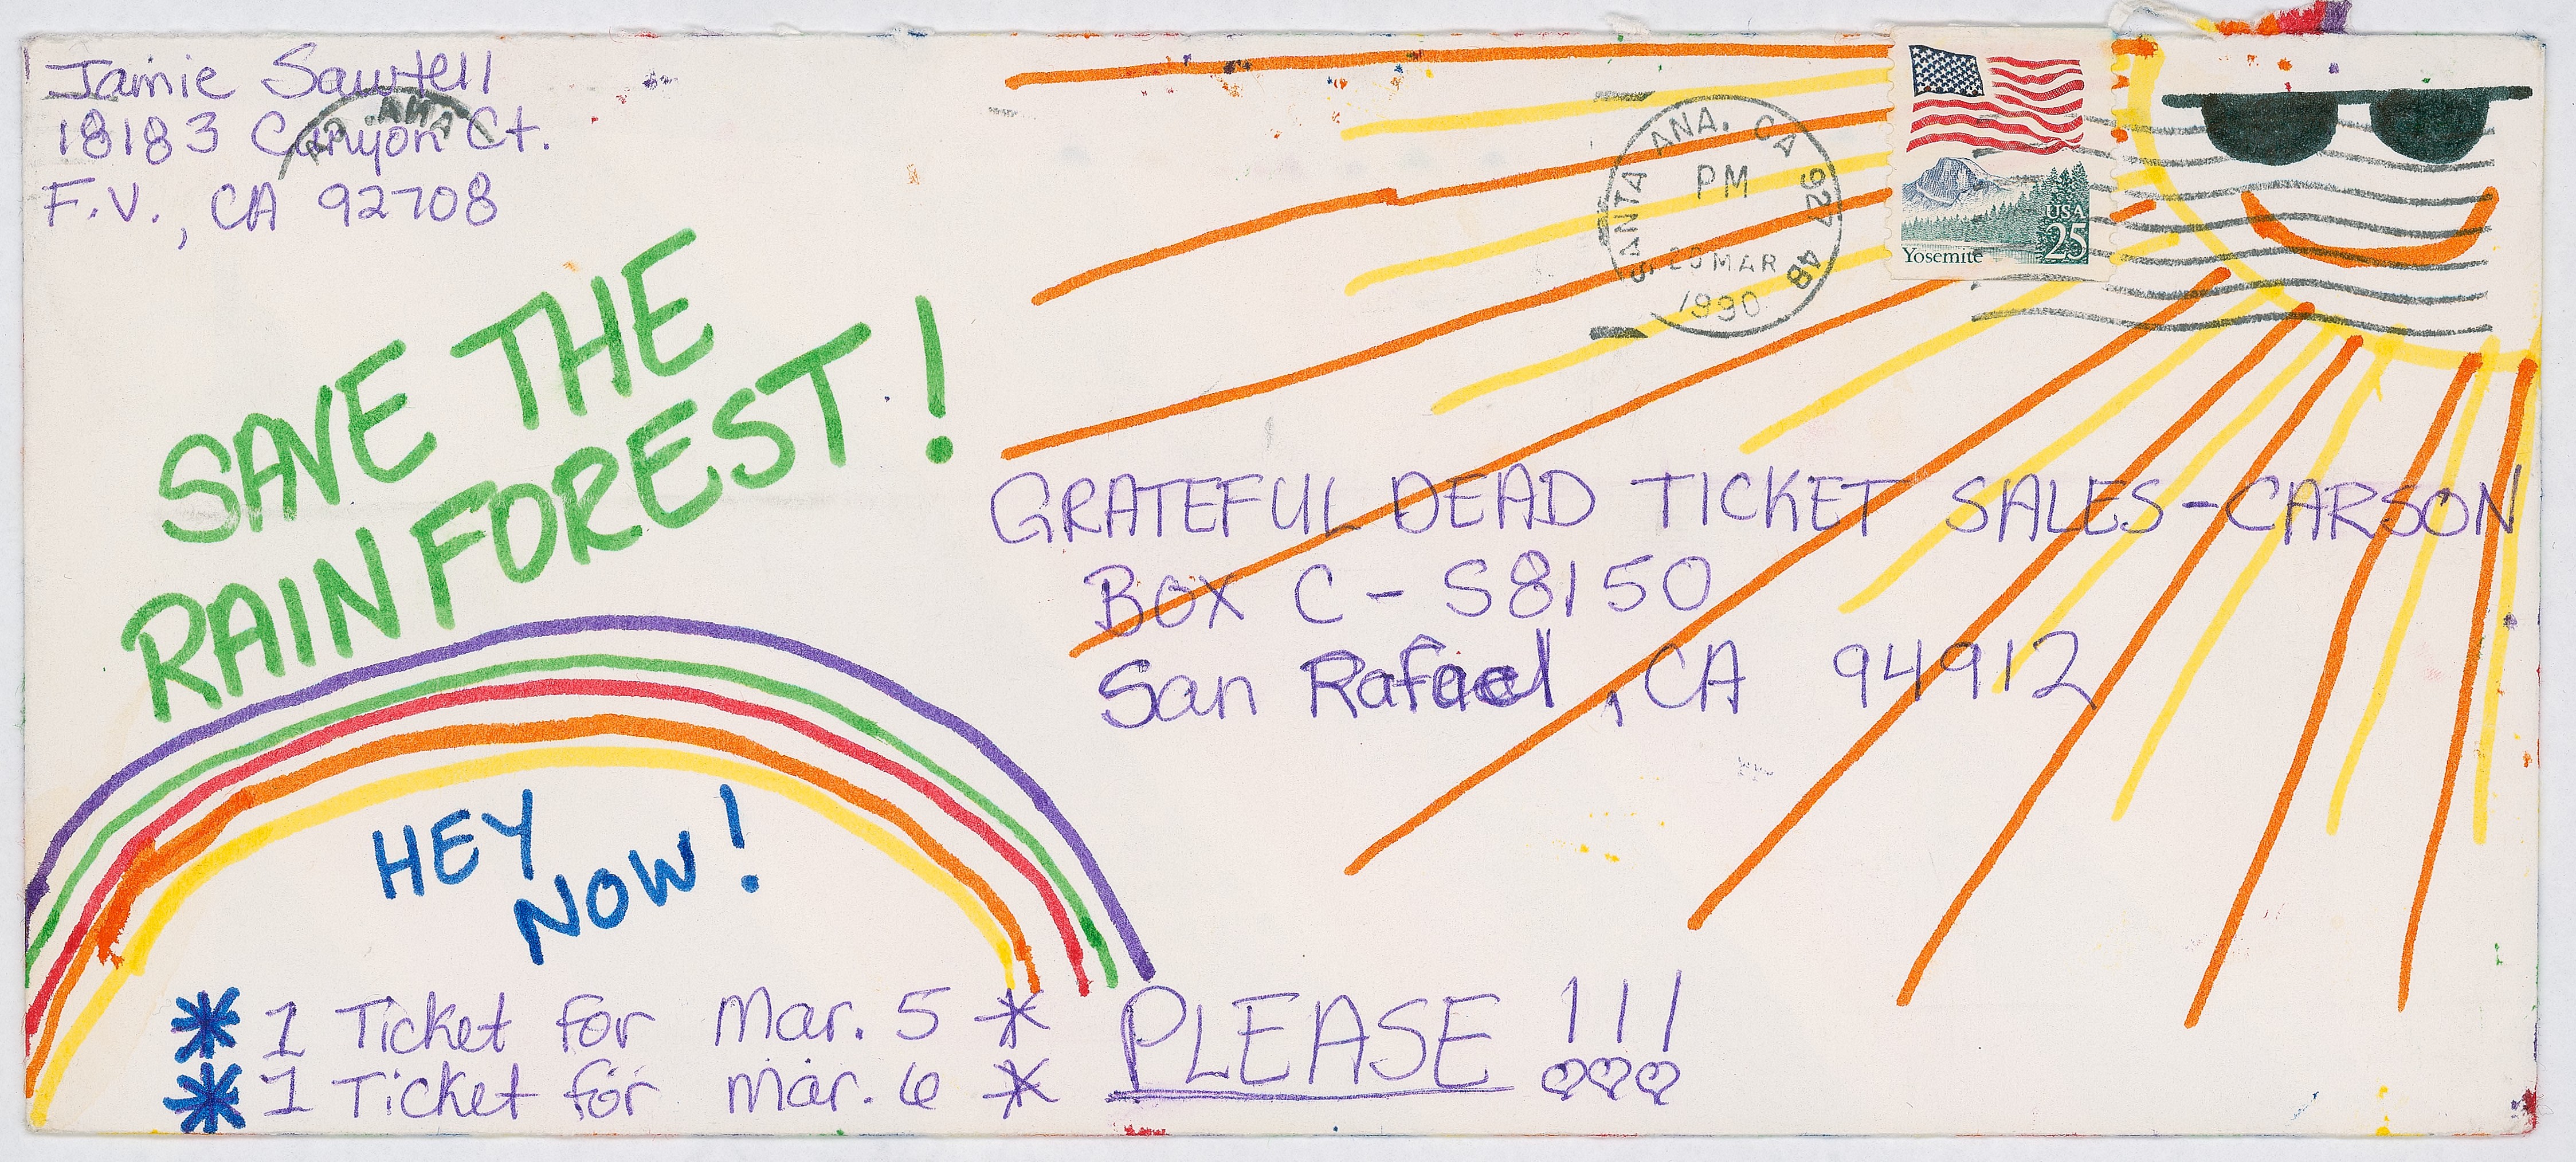 Jamie Sawtell
18183 Canyon Ct.
F.V., CA 92708
SANTA ANA. CA 927 4B
PM
MAR
1990
USA
25
Yosemite
SAVE THE
RAINFOREST!
GRATEFUL DEAD TICKET SALES-CARSON
BOX C - S8150
San Rafael, CA 94912
HEY
NOW!
* 1 Ticket for Mar. 5 * PLEASE !!!
* 1 Ticket for Mar. 6 *